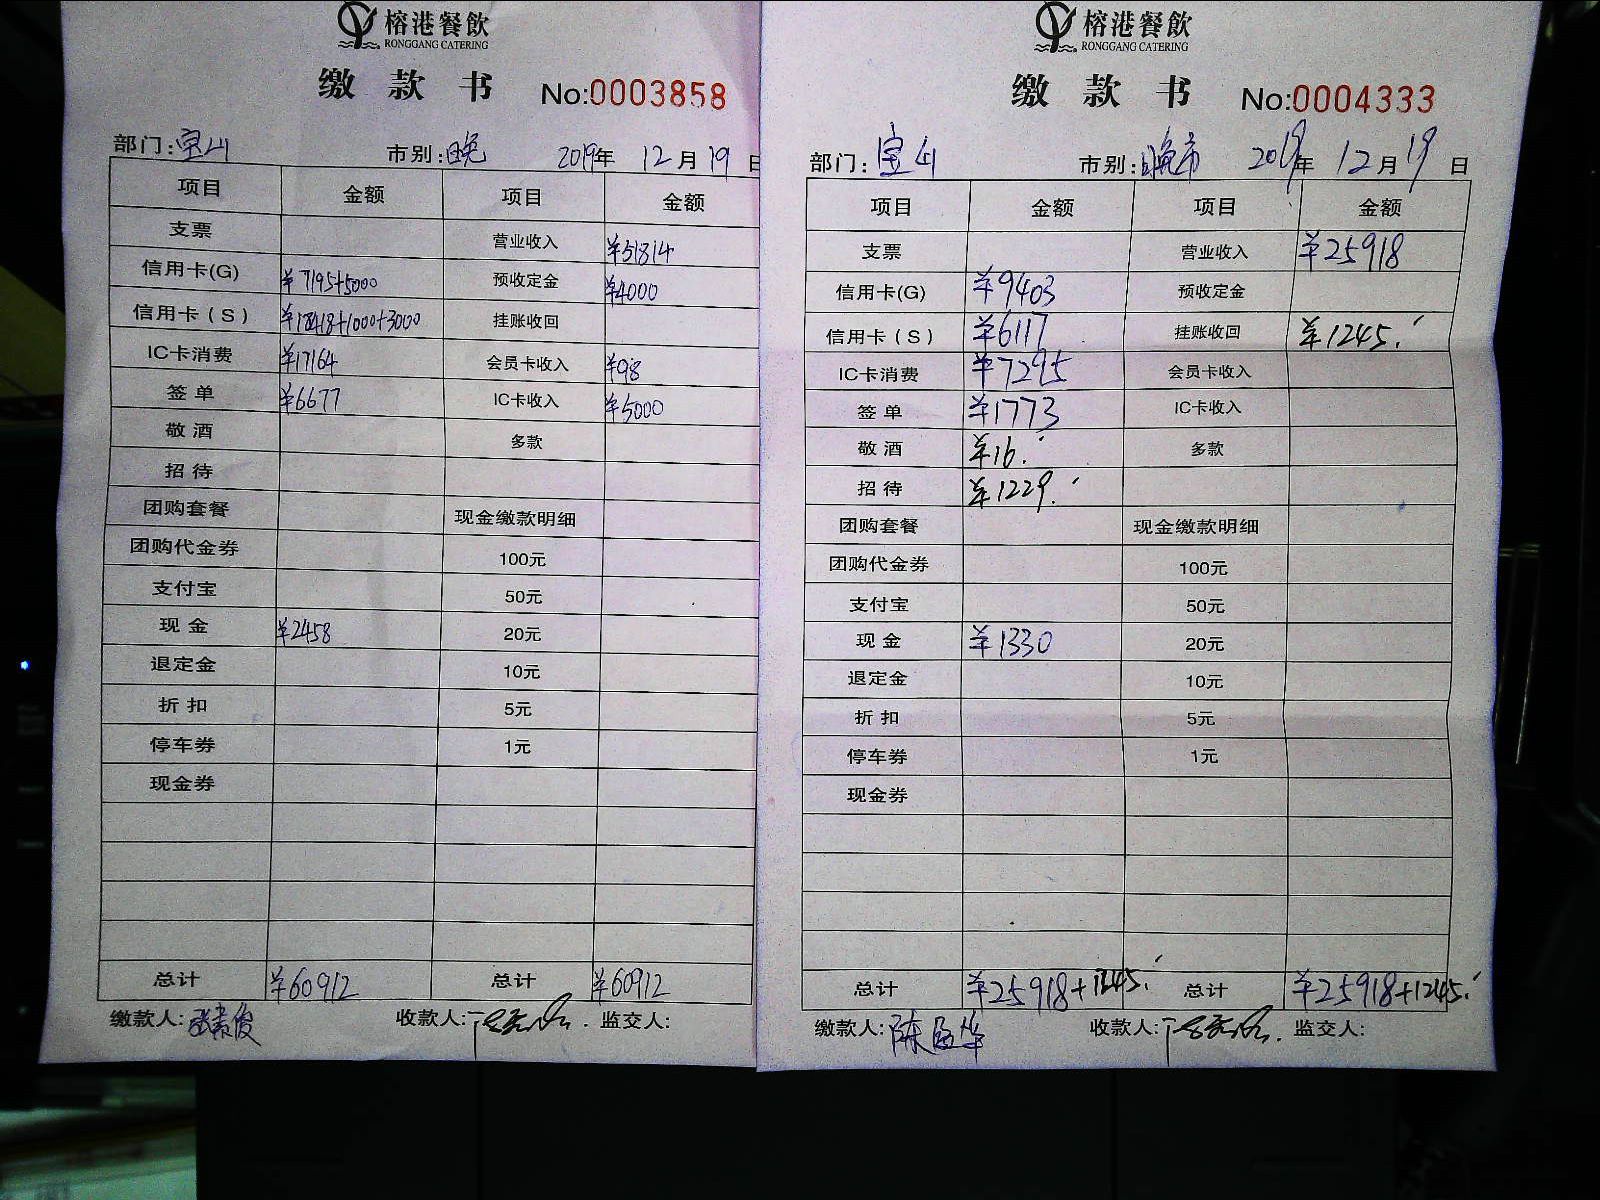 榕港餐飲
RONGGANG CATERING
缴款书 No:0003858
部门:宝山 市别:晚 2019年12月19日
项目 金额 项目 金额
支票 营业收入 ¥51814
信用卡(G) ¥7195+5000 预收定金 ¥4000
信用卡(S) ¥18418+1000+3000 挂账收回
IC卡消费 ¥17164 会员卡收入 ¥98
签单 ¥6677 IC卡收入 ¥5000
敬酒 多款
招待
团购套餐 现金缴款明细
团购代金券 100元
支付宝 50元
现金 ¥2458 20元
退定金 10元
折扣 5元
停车券 1元
现金券
总计 ¥60912 总计 ¥60912
缴款人: 收款人: 监交人:
榕港餐飲
RONGGANG CATERING
缴款书 No:0004333
部门:宝山 市别:晚市 2019年12月19日
项目 金额 项目 金额
支票 营业收入 ¥25918
信用卡(G) ¥9403 预收定金
信用卡(S) ¥6117 挂账收回 ¥1245.
IC卡消费 ¥7295 会员卡收入
签单 ¥1773 IC卡收入
敬酒 ¥16. 多款
招待 ¥1229.
团购套餐 现金缴款明细
团购代金券 100元
支付宝 50元
现金 ¥1330 20元
退定金 10元
折扣 5元
停车券 1元
现金券
总计 ¥25918+1245. 总计 ¥25918+1245.
缴款人: 收款人: 监交人: